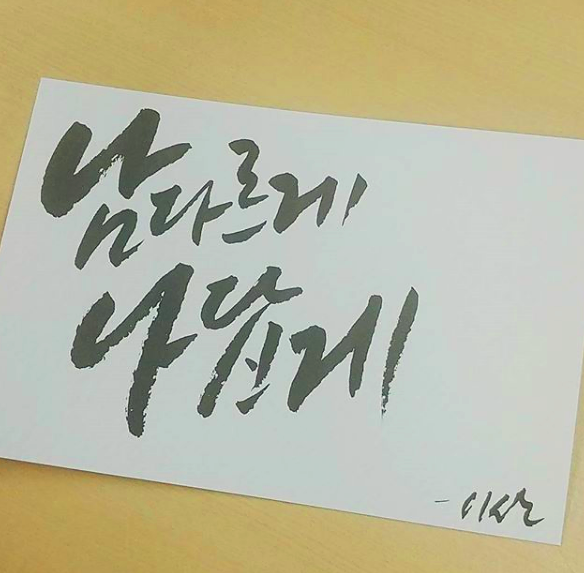 남다르게
나답게
- 이산